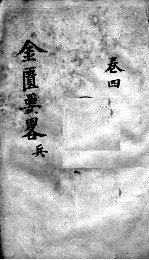 卷四
金匱要畧
兵